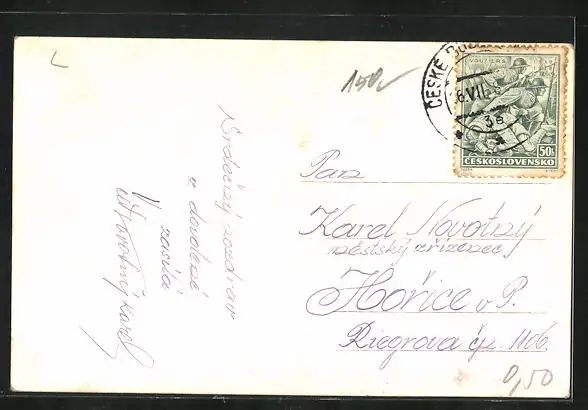 150,-
ČESKÉ BUD
6.VII.
3a
VOUZIERS
50h
ČESKOSLOVENSKO
Srdečný pozdrav
z dovolené
zasílá
V.
Novotný Karel
Pan
Karel Novotný
městský zřízenec,
Hořice v P.
Riegrova čp. 1106.
0,50